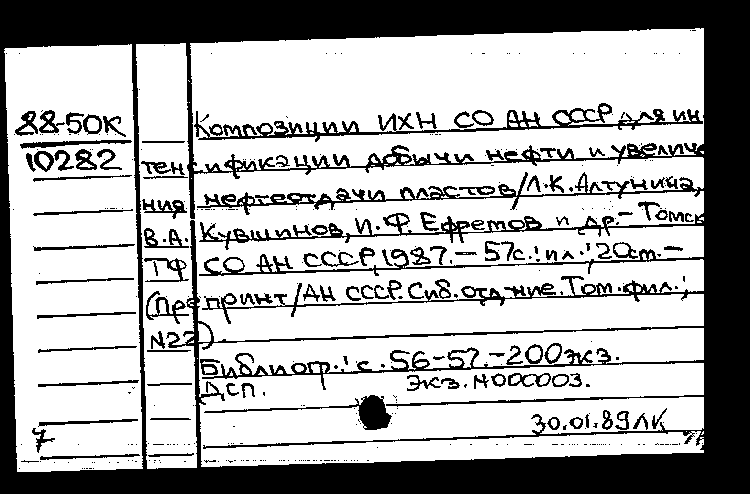 88-50К Композиции ИХН СО АН СССР для ин
10282 тенсификации добычи нефти и увеличе
ния нефтеотдачи пластов/Л.К.Алтунина,
В.А. Кувшинов, И.Ф. Ефретов и др.- Томск
ТФ СО АН СССР, 1987.- 57с.:ил.; 20см.-
(Препринт/АН СССР. Сиб.отд-ние. Том.фил.;
N22).
Библиогр.: с. 56-57.-200экз.
ДСП. Экз. N000003.
30.01.89ЛК
7